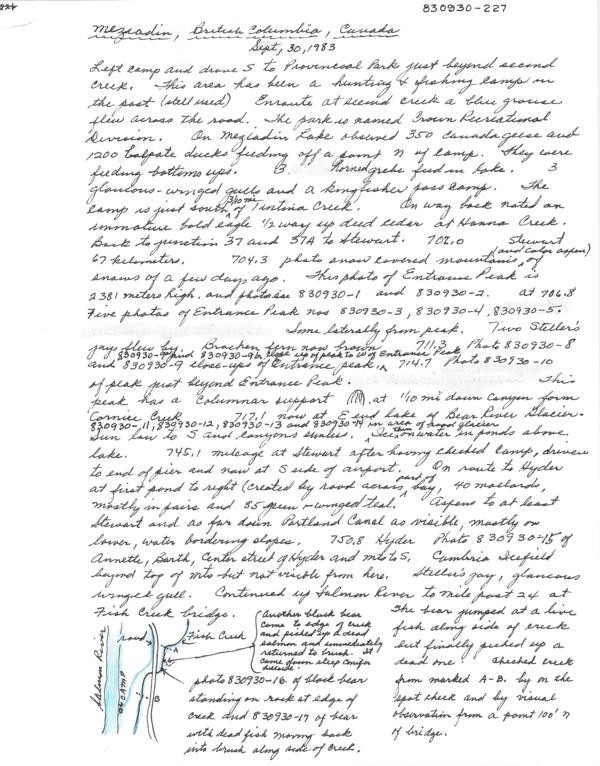 224
830930-227
Meziadin, British Columbia, Canada
Sept, 30, 1983
Left camp and drove S to Provincial Park just beyond second
creek. This area has been a hunting & fishing camp in
the past (still used) Enroute at second creek a blue grouse
flew across the road. The park is named Crown Recreational
Division. On Meziadin Lake observed 350 Canada geese and
1200 balpate ducks feeding off a point N of camp. They were
feeding bottoms ups. 3. Horned grebe feed in lake. 3
glaucous-winged gulls and a kingfisher pass camp. The
camp is just south 3/10 mi of Tintina Creek. On way back noted an
immature bald eagle 1/2 way up dead cedar at Hanna Creek.
Back to junction 37 and 37A to Stewart. 702.0 Stewart
67 kilometers. 704.3 photo snow covered mountains (and color aspen) of
snows of a few days ago. This photo of Entrance Peak is
2381 meters high. and photos are 830930-1 and 830930-2. at 706.8
Five photos of Entrance Peak nos 830930-3, 830930-4, 830930-5.
Some laterally from peak. Two Steller's
jays flew by. Bracken fern now brown 711.3 Photo 830930-8
830930-9a and 830930-9b, close up of peak to W of Entrance Peak
and 830930-9 close-ups of Entrance peak. 714.7 Photo 830930-10
of peak just beyond Entrance Peak. This
peak has a columnar support at 1/10 mi down Canyon form
Cornice Creek 717.1 now at E end lake of Bear River Glacier-
830930-11, 830930-12, 830930-13 and 830930-14 in area of road glacier
Sun low to S and canyons sunless. Ice, thin on water in ponds above
lake. 745.1 mileage at Stewart after having checked camp, driven
to end of pier and now at S side of airport. On route to Hyder
at first pond to right (created by road across part of bay, 40 mallards,
mostly in pairs and 85 green-winged teal. Aspens to at least
Stewart and as far down Portland Canal as visible, mostly on
lower, water bordering slopes. 750.8 Hyder Photo 830930-15 of
Annette, Barth, Center street of Hyder and mts to S. Cambria Icefield
beyond top of mts but not visible from here. Steller's jay, glaucous
winged gull. Continued up Salmon River to mile post 24 at
Fish Creek bridge.
Another black bear
came to edge of creek
and picked up a dead
salmon and immediately
returned to brush. It
came down steep conifer
hillside.
The bear jumped at a live
fish along side of creek
but finally picked up a
dead one. Checked creek
from marked A-B. by on the
spot check and by visual
observation from a point 100' N
of bridge.
Salmon River
road
Fish Creek
A
B
photo 830930-16 of black bear
standing on rock at edge of
creek and 830930-17 of bear
with dead fish moving back
into brush along side of creek.